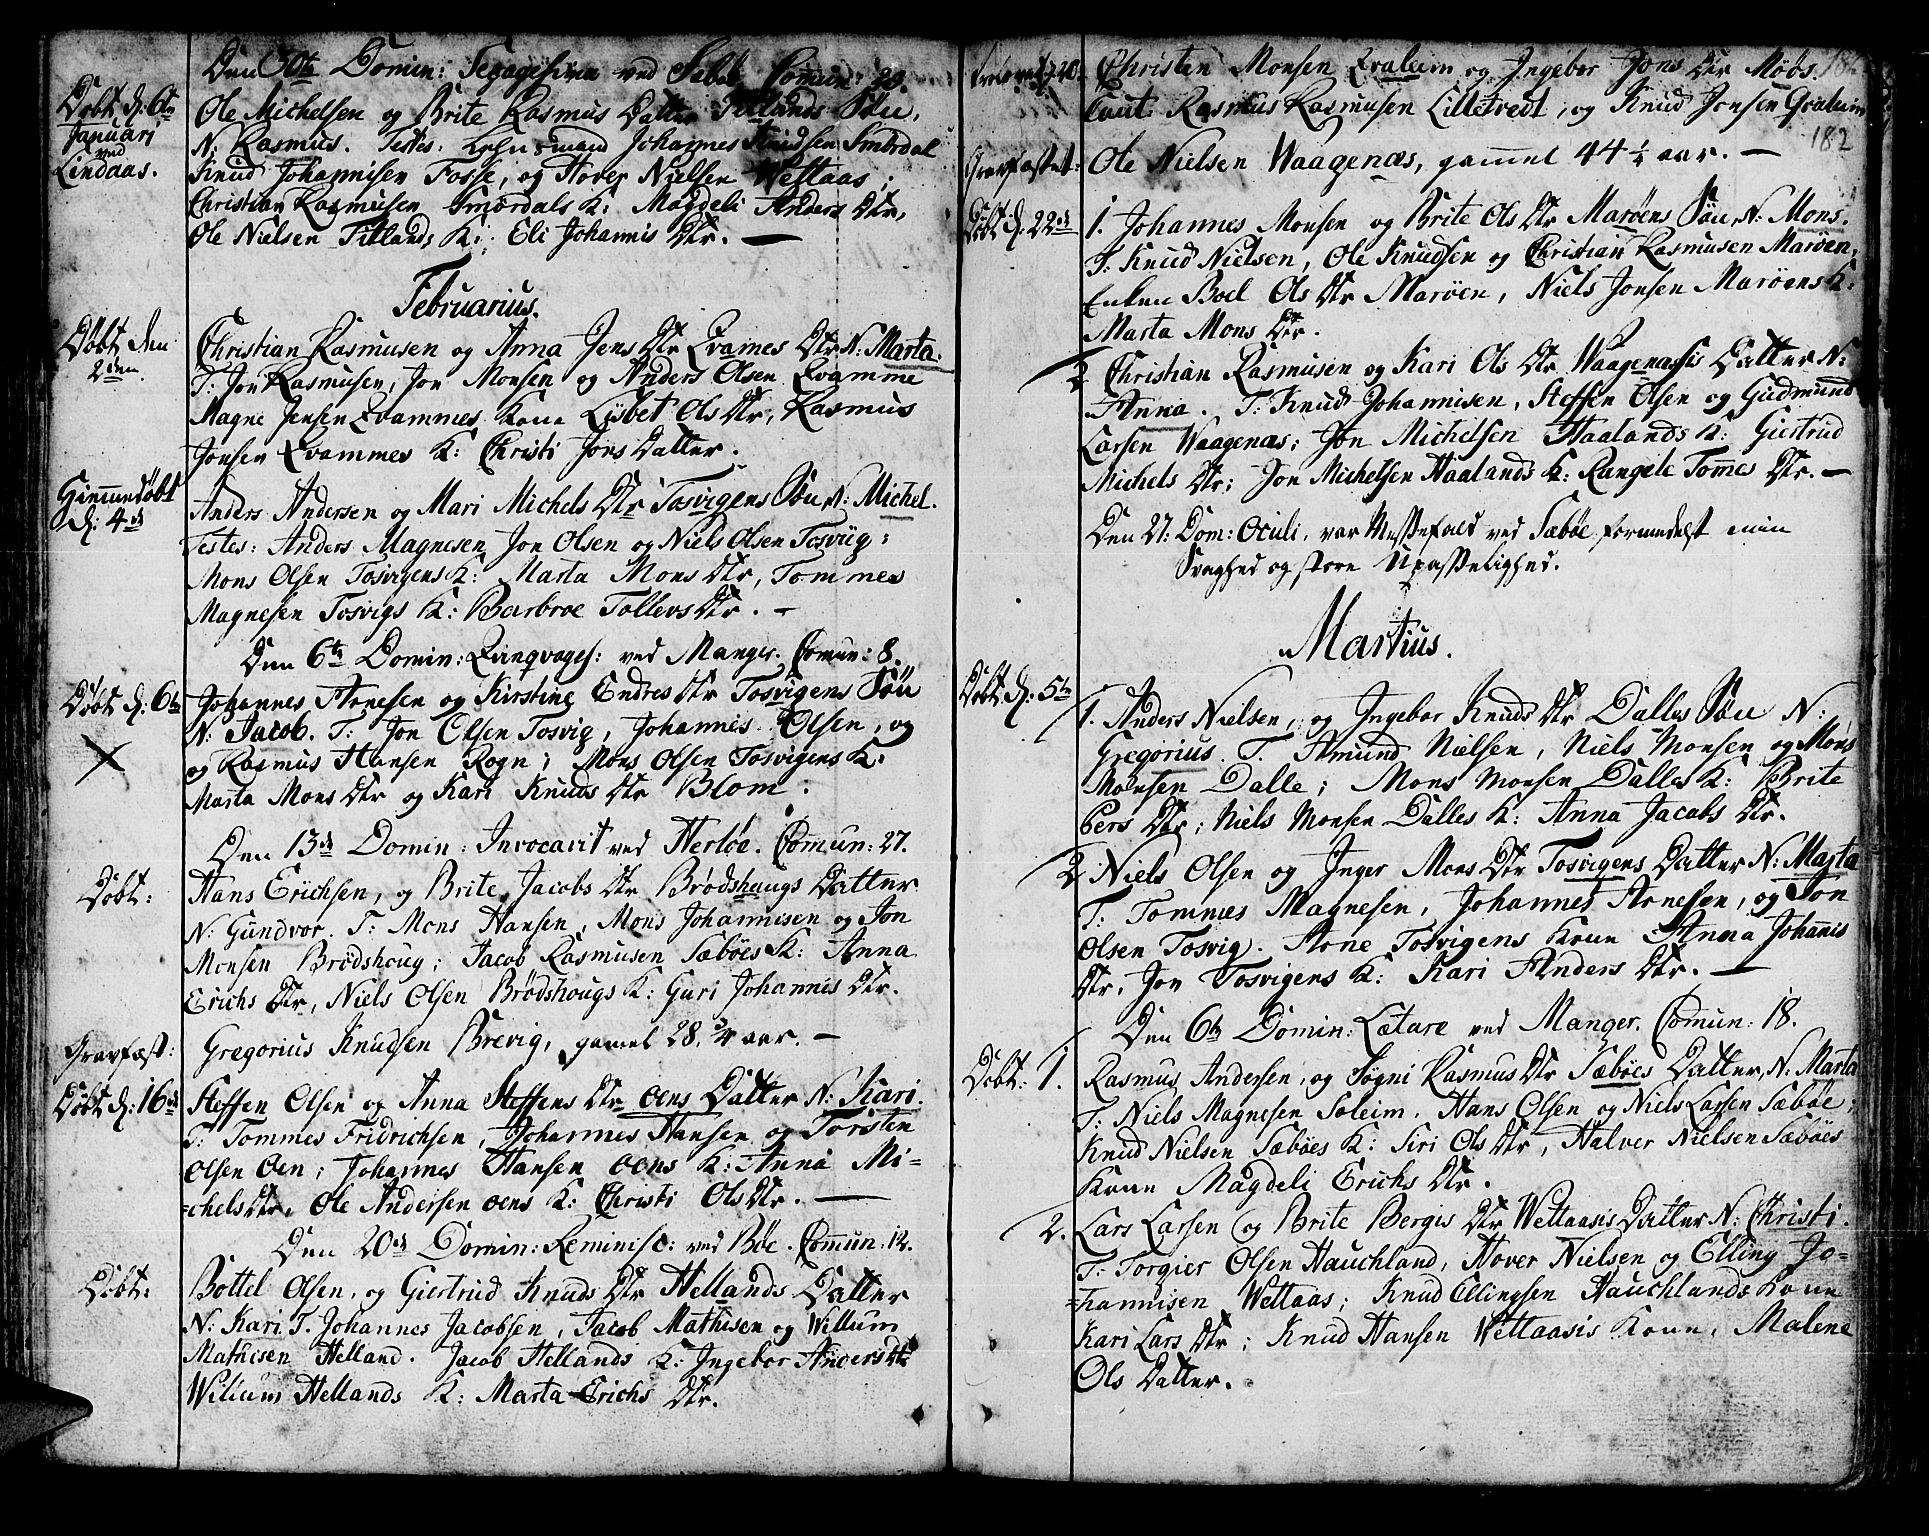 Den 30te Domin: Sexagesima ved Sæbøe Comun: 28.
Døbt d: 6te Januarj ved Lindaas.
Ole Michelsen og Brite Rasmus Datter Titlands Søn,
N: Rasmus. Testes: Lehnsmand Johannes Knudsen Smørdal
Knud Johannisen Fosse, og Hover Nielsen Wettaas;
Christian Rasmusen Smørdals K: Magdeli Anders Dtr,
Ole Nielsen Titlands K: Eli Johannis Dtr. —
Februarius.
Døbt den 2den.
Christian Rasmusen og Anna Jens Dtr Qvames Dtr N: Marta.
T: Jon Rasmusen, Jon Monsen og Anders Olsen Qvamme
Magne Jensen Qvammes Kone Lisbet Ols Dtr, Rasmus
Jonsen Qvammes K: Christi Jons Datter.
Hiemmedøbt d: 4de
Anders Andersen og Mari Michels Dtr Tosvigens Søn N: Michel.
Testes: Anders Magnesen Jon Olsen og Niels Olsen Tosviig:
Mons Olsen Tosvigens K: Marta Mons Dtr, Tommes
Magnesen Tosvigs K: Barbroe Tollevs Dtr. —
Den 6te Domin: Qvinqvages: ved Manger. Comun: 8.
Døbt d: 6te
Johannes Arnesen og Kirstine Endres Dtr Tosvigens Søn
N: Jacob. T: Jon Olsen Tosvig, Johannes Olsen, og
og Rasmus Hansen Rogn; Mons Olsen Tosvigens K:
Marta Mons Dtr og Kari Knuds Dtr Blom.
Den 13de Domin: Invocavit ved Herløe. Comun: 27.
Døbt:
Hans Erichsen, og Brite Jacobs Dtr Brødshougs Datter
N: Gundvor. T: Mons Hansen, Mons Johannisen og Jon
Monsen Brødshoug; Jacob Rasmusen Sæbøes K: Anna
Erichs Dtr, Niels Olsen Brødshougs K: Guri Johannis Dtr.
Gravfæst:
Gregorius Knudsen Brevig, gamel 28 3/4 aar. —
Døbt d: 16de
Steffen Olsen og Anna Steffens Dtr Oens Datter N: Kari.
T: Tommes Fridrichsen, Johannes Hansen og Torsten
Olsen Oen; Johannes Hansen Oens K: Anna Mi=
=chels Dtr, Ole Andersen Oens K: Christi Ols Dtr. —
Den 20de Domin: Reminisc: ved Bøe. Comun: 12.
Døbt:
Bottel Olsen, og Giertrud Knuds Dtr Hellands Datter
N: Kari T. Johannes Jacobsen, Jacob Mathisen og Willum
Mathisen Helland. Jacob Hellands K: Ingebor Anders Dtr
Willum Hellands K: Marta Erichs Dtr.
Christen Monsen Qvaleim og Ingebor Jons Dtr Møøs.
Caut: Rasmus Rasmusen Lilletvedt, og Knud Jonsen Qvaleim
182
Gravfæstet:
Ole Nielsen Waagenæs, gammel 44 1/4 aar. —
Døbt d: 22de
1. Johannes Monsen og Brite Ols Dtr Marøens Søn N: Mons.
T: Knud Nielsen, Ole Knudsen og Christian Rasmusen Marøen,
Enken Boel Ols Dtr Marøen, Niels Jonsen Marøens K:
Marta Mons Dtr.
2 Christian Rasmusen og Kari Ols Dtr Waagenæssis Datter N:
Anna. T: Knud Johannisen, Steffen Olsen og Gudmund
Larsen Waagenæs; Jon Michelsen Haalands K: Giertrud
Michels Dtr; Jon Michelsen Haalands K: Rangele Tommes Dtr. —
Den 27: Dom: Oculi, var Messefald ved Sæbøe formedelst min
Svaghed og store Upasselighed.
Martius.
Døbt d: 5te
1. Anders Nielsen, og Ingebor Knuds Dtr Dalles Søn N:
Gregorius. T. Amund Nielsen, Niels Monsen og Mons
Monsen Dalle; Mons Monsen Dalles K: Brite
Pers Dtr; Niels Monsen Dalles K: Anna Jacobs Dtr.
2 Niels Olsen og Inger Mons Dtr Tosvigens Datter N: Marta
T: Tommes Magnesen, Johannes Arnesen, og Jon
Olsen Tosvig. Arne Tosvigens Kone Anna Johannis
Dtr, Jon Tosvigens K: Kari Anders Dtr. —
Den 6te Domin: Lætare ved Manger. Comun: 18.
Døbt: 1.
Rasmus Andersen, og Søgni Rasmus Dtr Sæbøes Datter, N: Marta
T: Niels Magnesen Soleim, Hans Olsen og Niels Larsen Sæbøe;
Knud Nielsen Sæbøes K: Siri Ols Dtr, Halver Nielsen Sæbøes
Kone Magdeli Erichs Dtr.
2. Lars Larsen og Brite Bergis Dtr Wettaasis Datter N: Christi.
T: Torgier Olsen Hauchland, Hover Nielsen og Elling Jo=
=hannisen Wettaas; Knud Ellingsen Hauchlands Kone
Kari Lars Dtr; Knud Hansen Wettaasis Kone, Malene
Ols Datter.